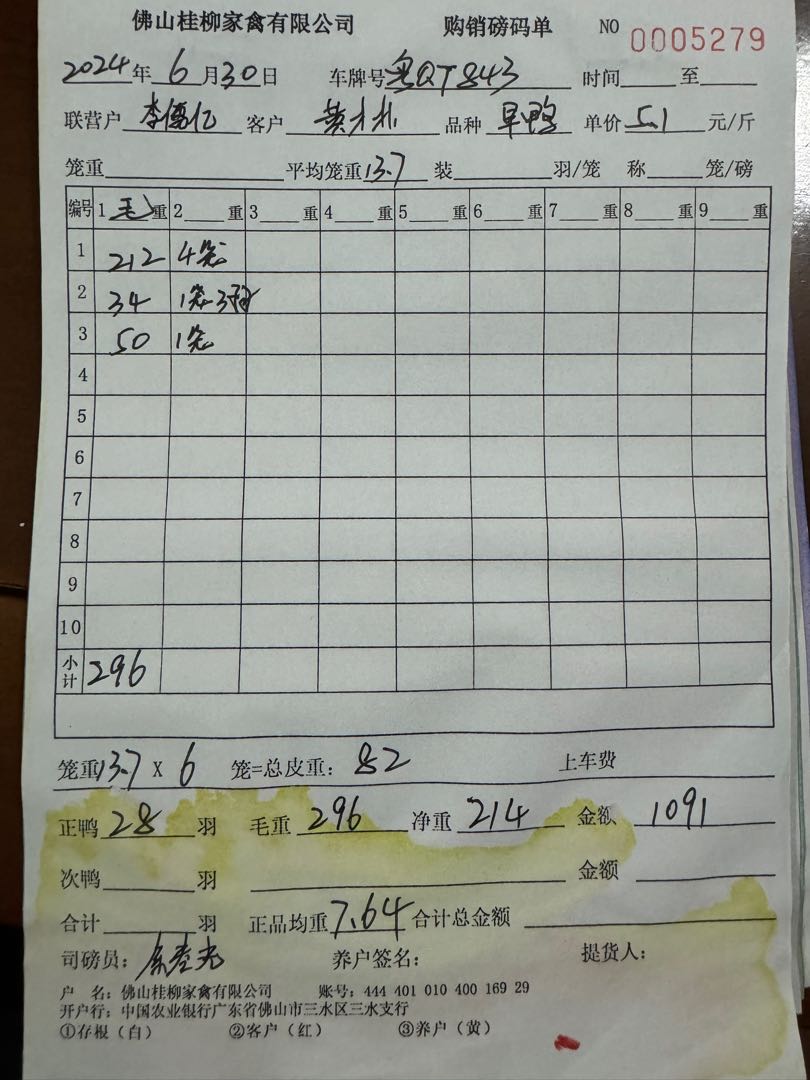 佛山桂柳家禽有限公司 购销磅码单 NO 0005279
2024年6月30日 车牌号粤QT843 时间 至
联营户 李 亿 客户 黄 品种 旱鸭 单价 5.1 元/斤
笼重 平均笼重13.7 装 羽/笼 称 笼/磅
编号 1毛重 2 重 3 重 4 重 5 重 6 重 7 重 8 重 9 重
1 212 4笼
2 34 1笼3
3 50 1笼
4
5
6
7
8
9
10
小计 296
笼重13.7 X 6 笼=总皮重: 82 上车费
正鸭 28 羽 毛重 296 净重 214 金额 1091
次鸭 羽 金额
合计 羽 正品均重7.64 合计总金额
司磅员: 养户签名: 提货人:
户 名: 佛山桂柳家禽有限公司 账号: 444 401 010 400 169 29
开户行: 中国农业银行广东省佛山市三水区三水支行
①存根(白) ②客户(红) ③养户(黄)